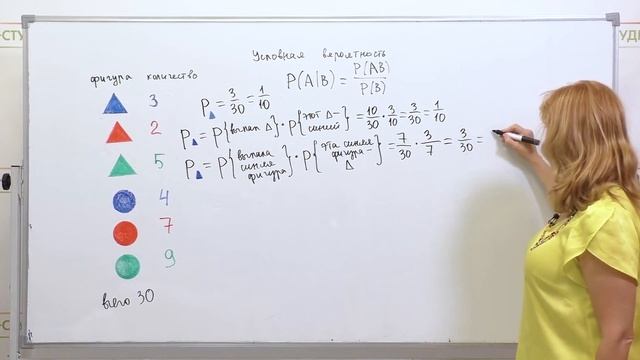 Условная вероятность
P(A|B) = P(AB)/P(B)
фигура количество
3
2
5
4
7
9
всего 30
P = 3/30 = 1/10
P = P{выпал Δ} · P{этот Δ – синий} = 10/30 · 3/10 = 3/30 = 1/10
P = P{выпала синяя фигура} · P{эта синяя фигура – Δ} = 7/30 · 3/7 = 3/30 =